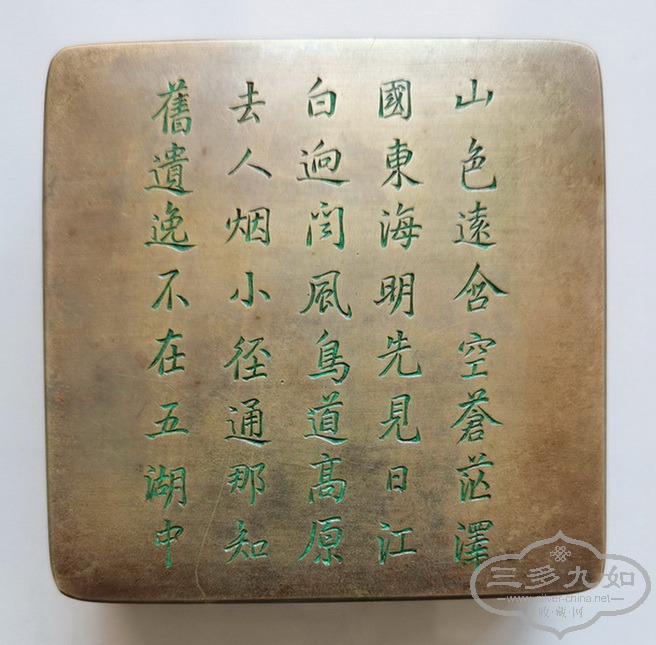 山色遠含空蒼茫澤
國東海明先見日江
白迥聞風鳥道高原
去人烟小徑通那知
舊遺逸不在五湖中
三多九如
www.silver-china.net
收·藏·网